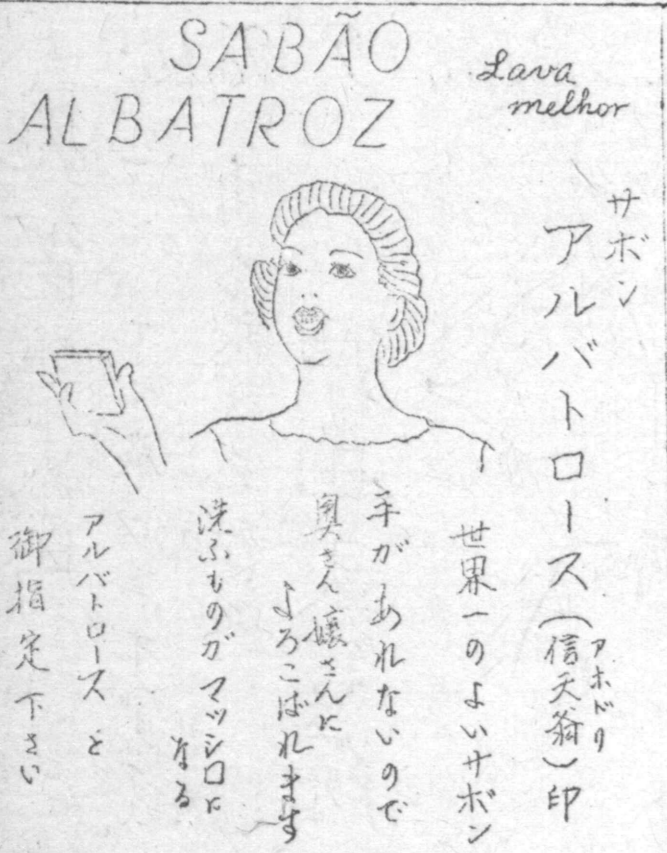 SABÃO
ALBATROZ
Lava
melhor
サボン
アルバトロース(信天翁)印
アホドリ
世界一のよいサボン
手があれないので
奥さん嬢さんに
よろこばれます
洗ふものがマッシロに
なる
アルバトロースと
御指定下さい